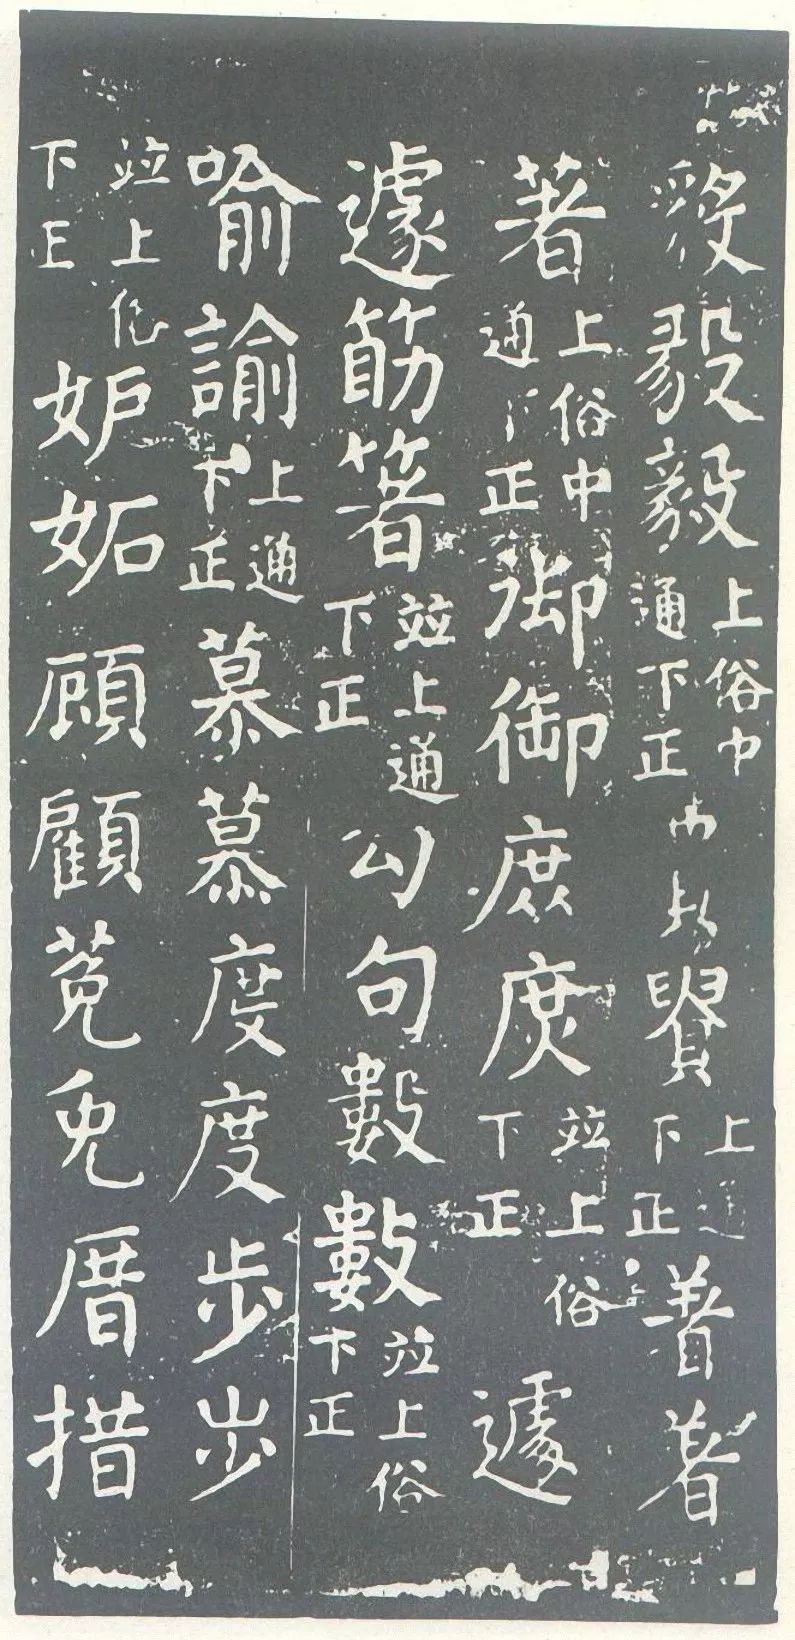 毅毅上俗中通下正賢上通下正着著
著上俗中通下正御御庶庶竝上俗下正遽
遽筯箸竝上通下正勾句數數竝上俗下正
喻諭上通下正慕慕度度步步
竝上俗下正妒妬頋顧莵兔厝措